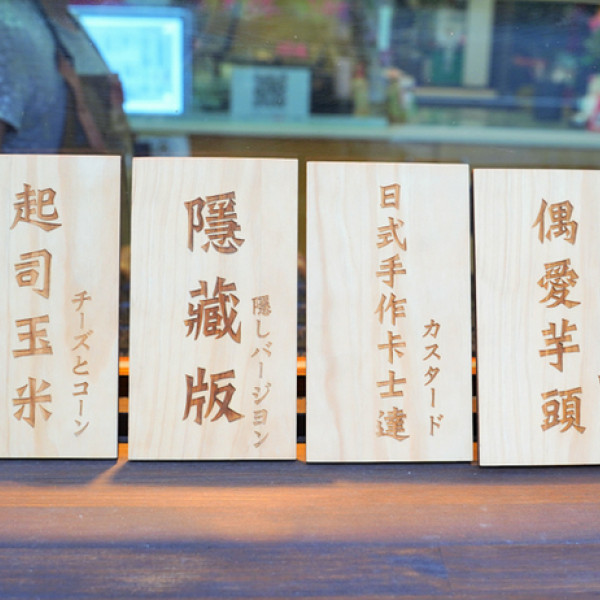 起司玉米
チーズとコーン
隱藏版
隠しバージヨン
日式手作卡士達
カスタード
偶愛芋頭